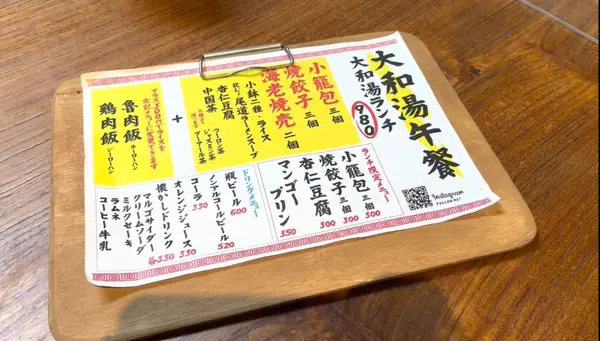 大和湯午餐
大和湯ランチ
980
小籠包 三個
焼餃子 三個
海老焼売 二個
小鉢二種・ライス
尾道ラーメンスープ
杏仁豆腐
中国茶
ウーロン茶
ジャスミン茶
プーアール茶
+
プラス300円でライスを
魯肉飯 ルーローハン
鶏肉飯 ジーローハン
ランチ限定メニュー
小籠包 三個 300
焼餃子 三個 300
杏仁豆腐 300
マンゴープリン 350
ドリンクメニュー
瓶ビール 600
ノンアルコールビール 520
コーラ 330
オレンジジュース 330
懐かしドリンク 各330
マルゴサイダー
クリームソーダ
ミルクセーキ
ラムネ
コーヒー牛乳
Instagram
FOLLOW ME!